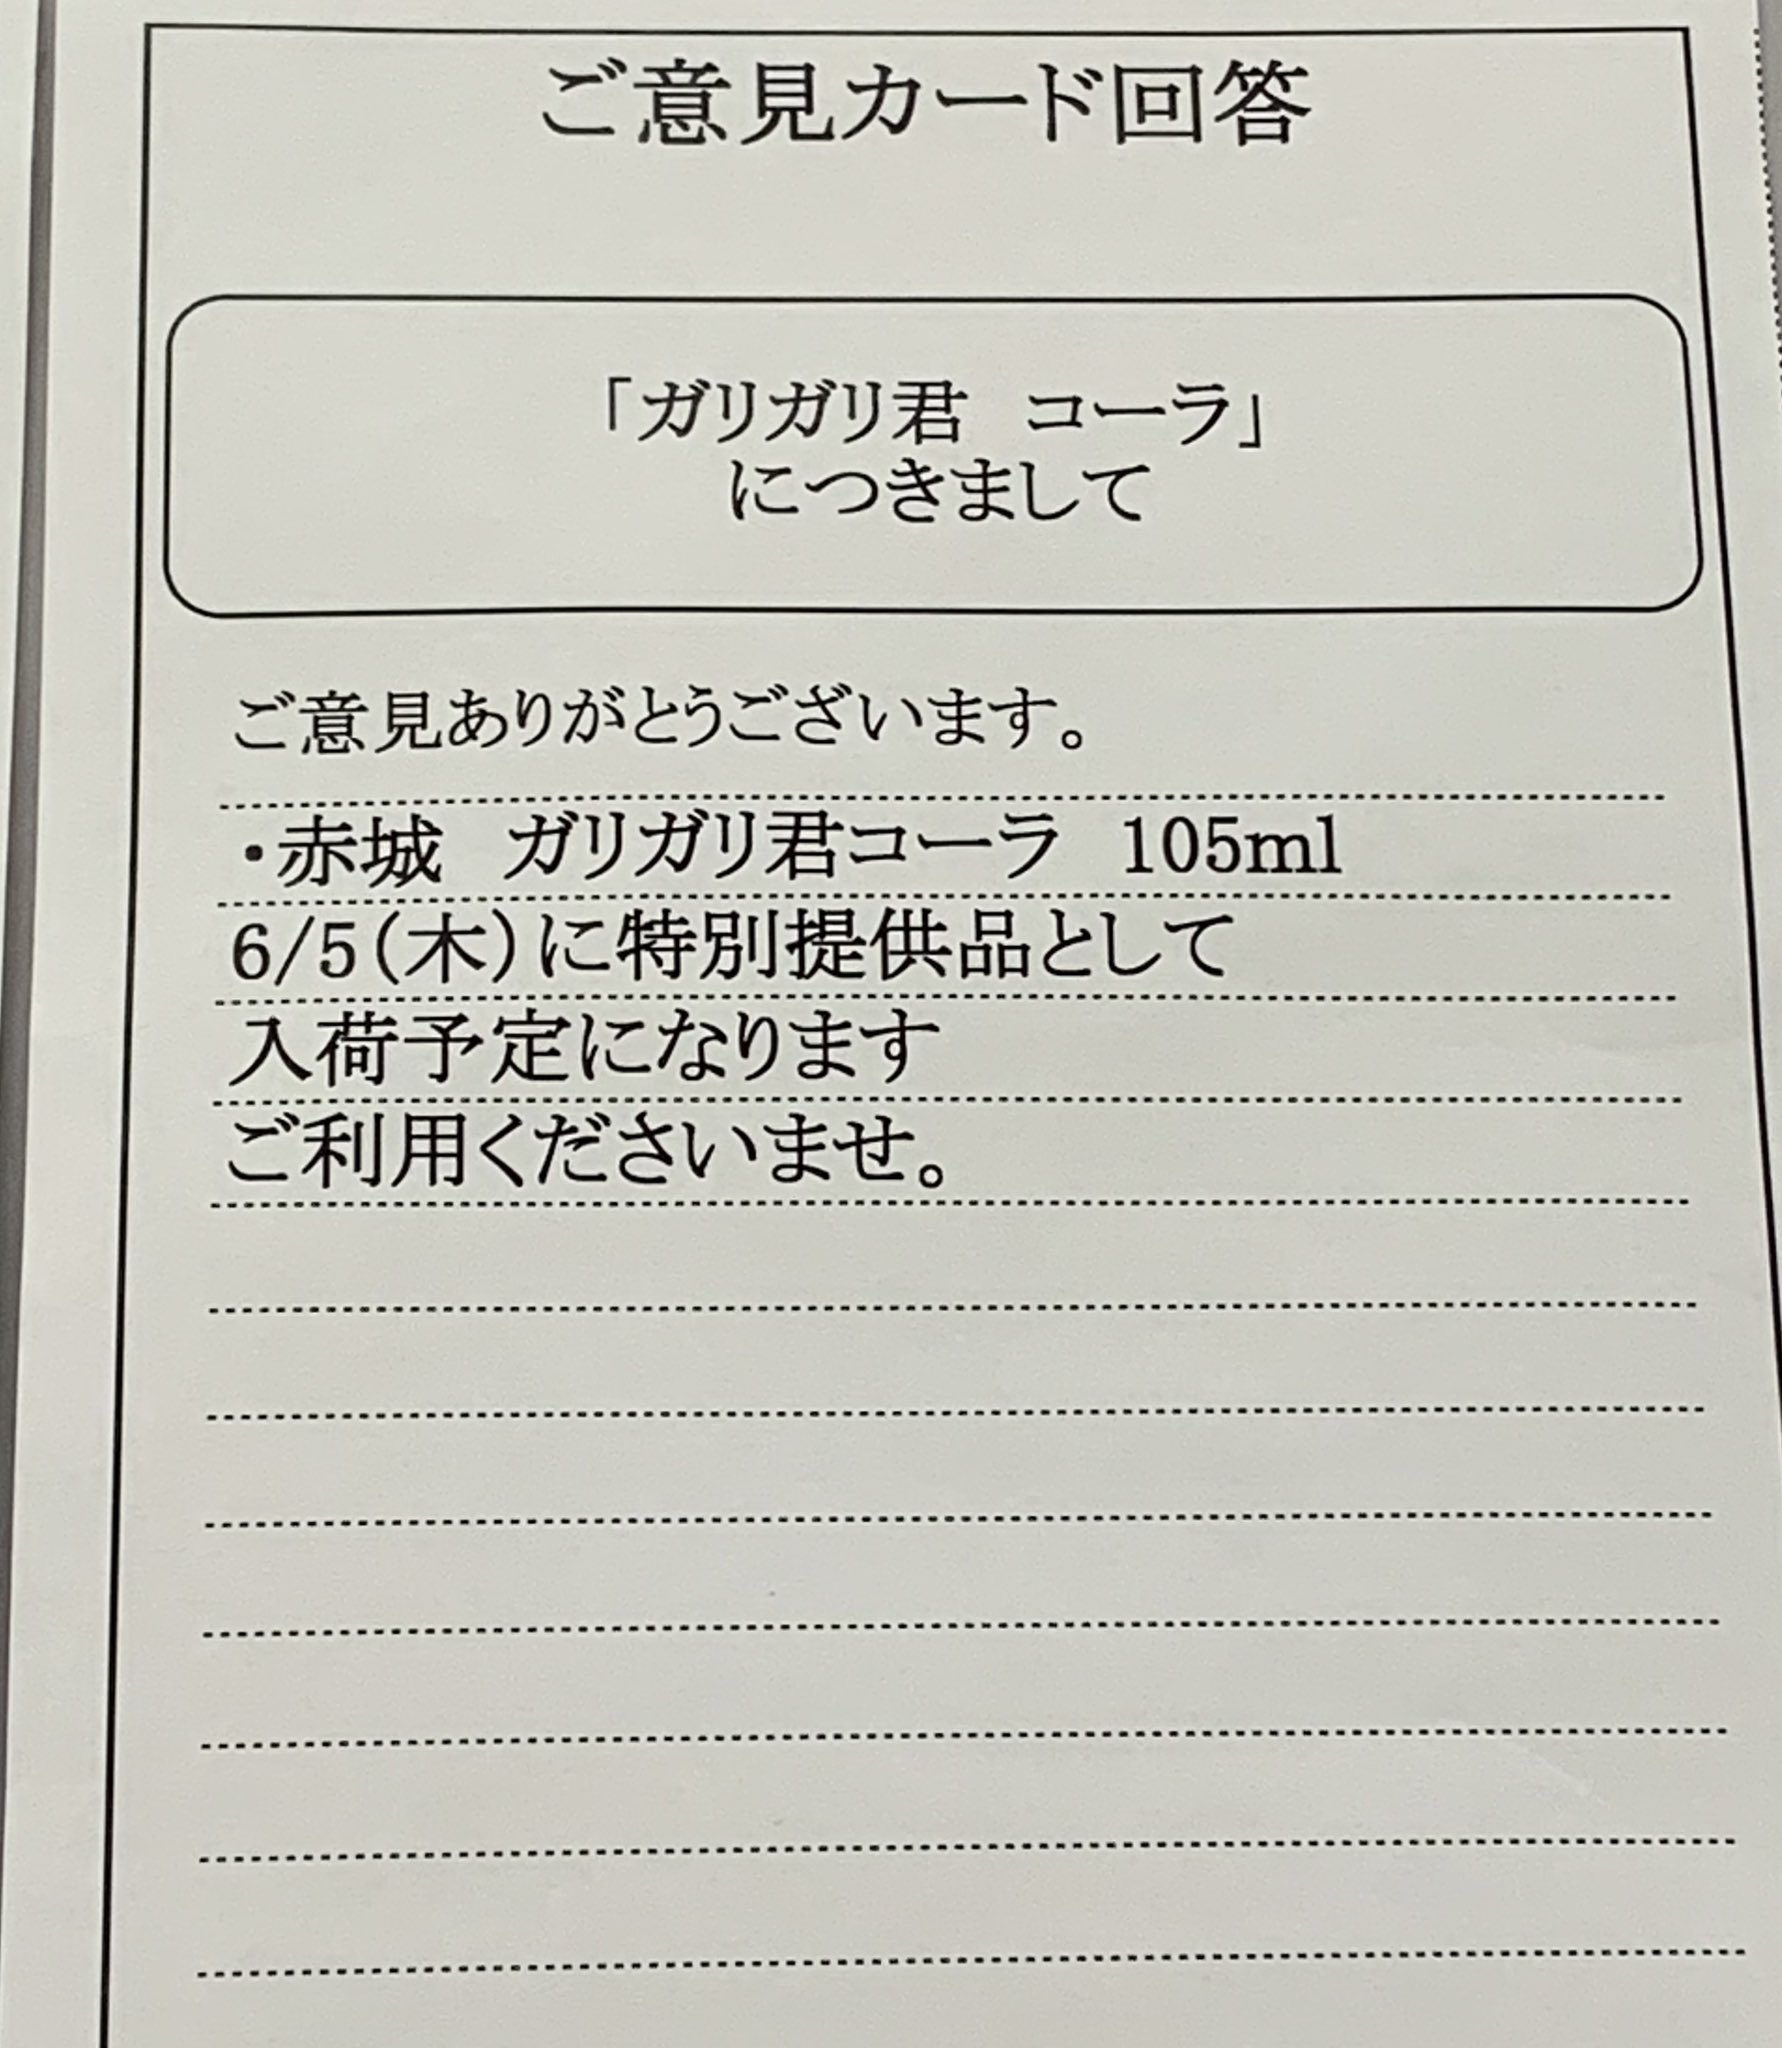 ご意見カード回答
「ガリガリ君　コーラ」
につきまして
ご意見ありがとうございます。
・赤城　ガリガリ君コーラ　105ml
6/5(木)に特別提供品として
入荷予定になります
ご利用くださいませ。